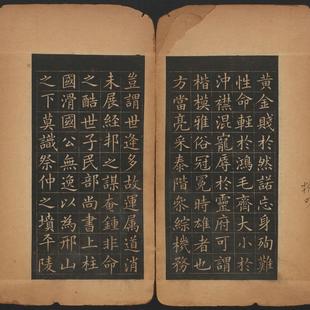 黃金賤於然諾忘身殉難
性命輕於鴻毛齊大小於
沖襟混寵辱於靈府可謂
楷模雅俗冠冕時雄者也
方當亮采泰階叅綜機務
豈謂世逢多故運属道消
未展經邦之謀奄鍾非命
之酷世子民部尚書上柱
國滑國公無逸以為邢山
之下莫識祭仲之墳平陵